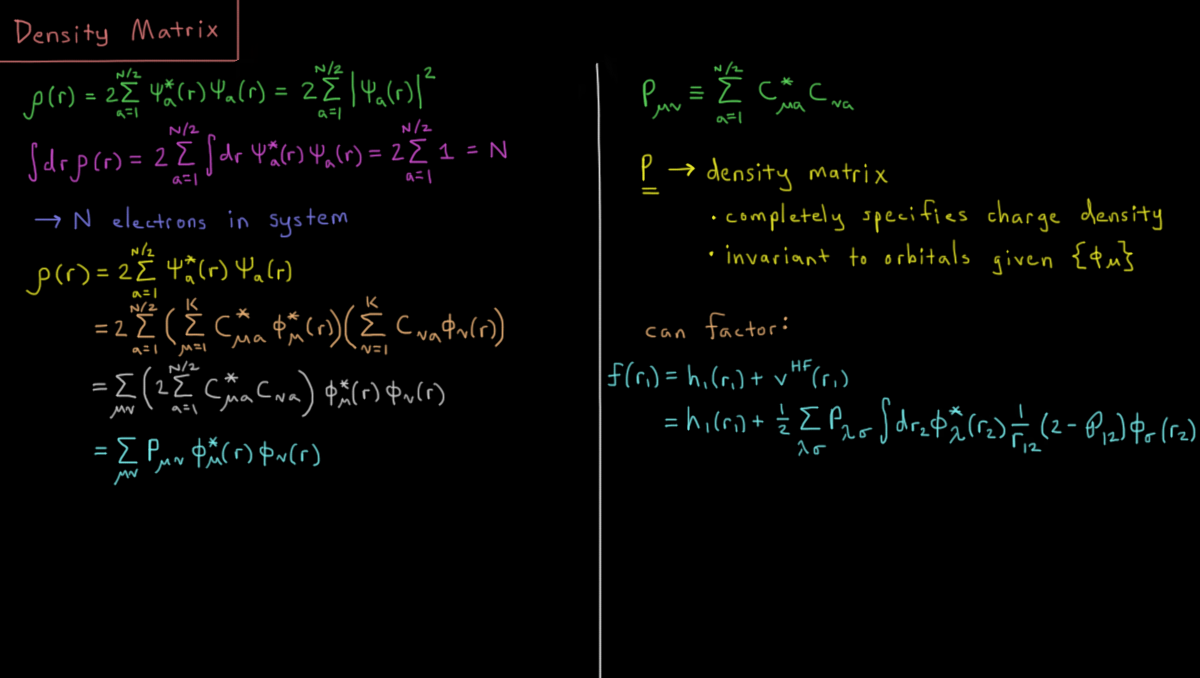 Density Matrix
ρ(r) = 2 Σ_{a=1}^{N/2} Ψ_a^*(r) Ψ_a(r) = 2 Σ_{a=1}^{N/2} |Ψ_a(r)|^2
∫dr ρ(r) = 2 Σ_{a=1}^{N/2} ∫dr Ψ_a^*(r) Ψ_a(r) = 2 Σ_{a=1}^{N/2} 1 = N
→ N electrons in system
ρ(r) = 2 Σ_{a=1}^{N/2} Ψ_a^*(r) Ψ_a(r)
= 2 Σ_{a=1}^{N/2} ( Σ_{μ=1}^{K} C_{μa}^* ϕ_μ^*(r) ) ( Σ_{ν=1}^{K} C_{νa} ϕ_ν(r) )
= Σ_{μν} ( 2 Σ_{a=1}^{N/2} C_{μa}^* C_{νa} ) ϕ_μ^*(r) ϕ_ν(r)
= Σ_{μν} P_{μν} ϕ_μ^*(r) ϕ_ν(r)
P_{μν} ≡ Σ_{a=1}^{N/2} C_{μa}^* C_{νa}
P → density matrix
· completely specifies charge density
· invariant to orbitals given {ϕ_μ}
can factor:
f(r_1) = h_1(r_1) + v^{HF}(r_1)
= h_1(r_1) + 1/2 Σ_{λσ} P_{λσ} ∫dr_2 ϕ_λ^*(r_2) 1/r_{12} (2 - 𝒫_{12}) ϕ_σ(r_2)